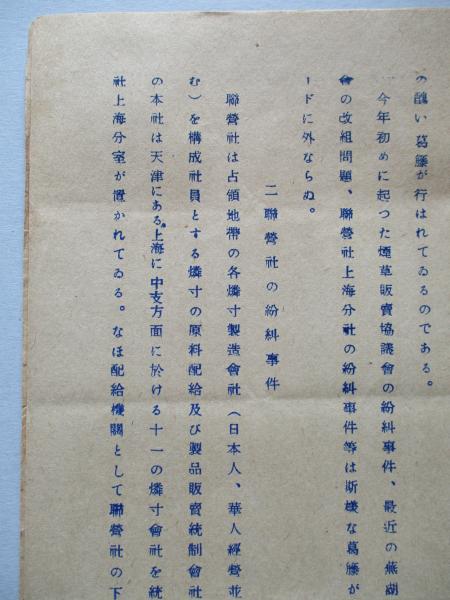 の醜い葛籐が行はれてゐるのである。
今年初めに起つた煙草販賣協議會の紛糾事件、最近の蕪湖
會の改組問題、聯營社上海分社の紛糾事件等は斯樣な葛籐が
ードに外ならぬ。
二聯營社の紛糾事件
聯營社は占領地帶の各燐寸製造會社(日本人、華人經營並
む)を構成社員とする燐寸の原料配給及び製品販賣統制會社
の本社は天津にある。上海に中支方面に於ける十一の燐寸會社を統
社上海分室が置かれてゐる。なほ配給機關として聯營社の下